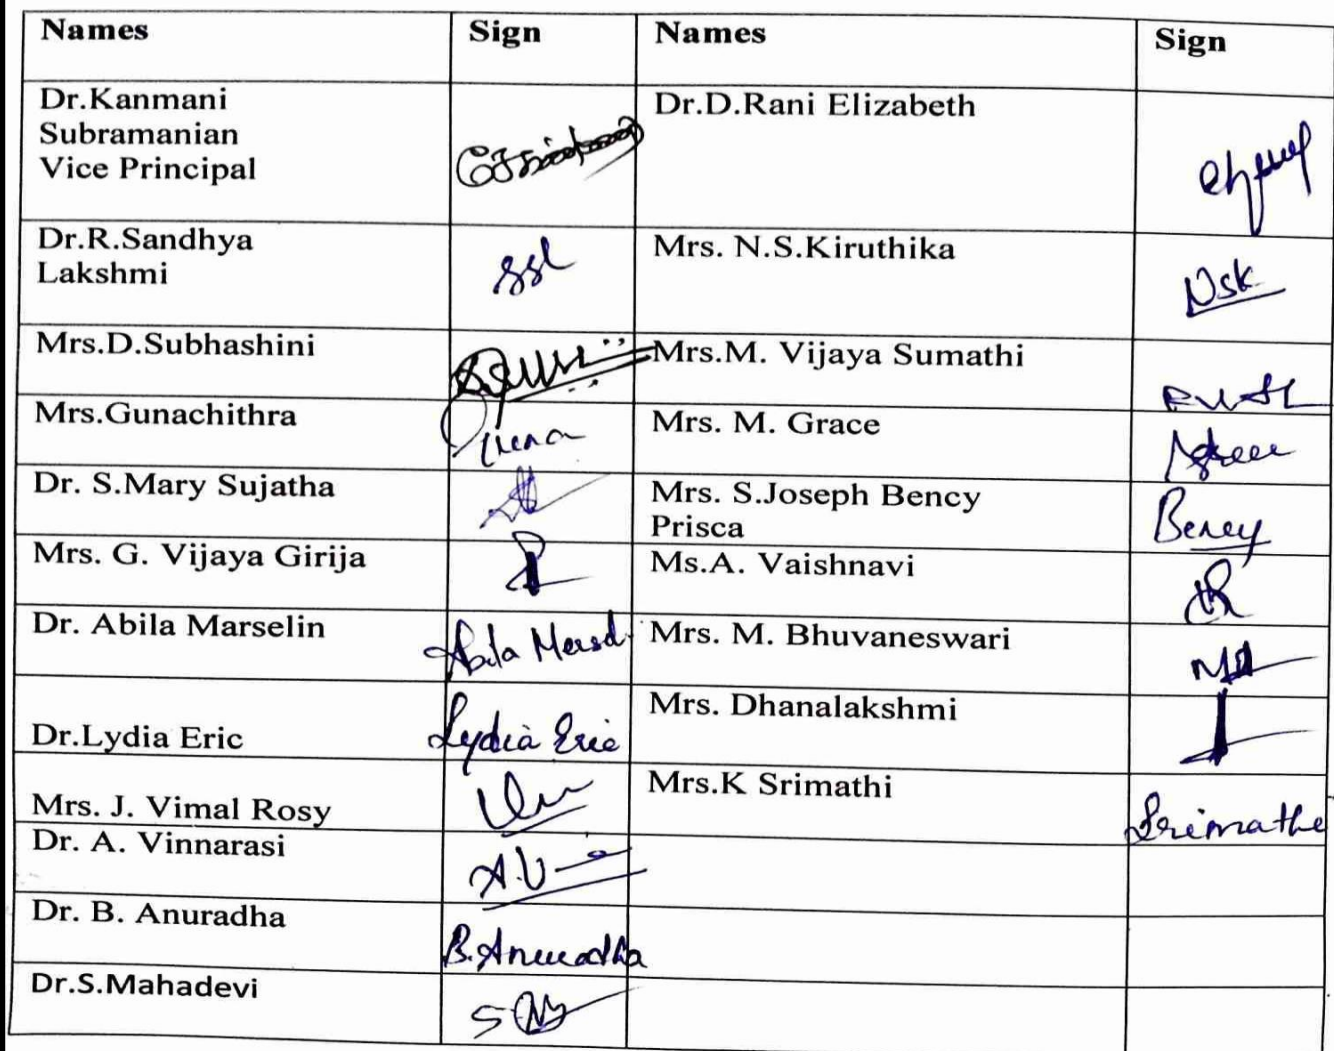 Names Sign Names Sign
Dr.Kanmani
Subramanian
Vice Principal
Dr.D.Rani Elizabeth
Dr.R.Sandhya
Lakshmi
ssl
Mrs. N.S.Kiruthika
Nsk
Mrs.D.Subhashini
Mrs.M. Vijaya Sumathi
Mrs.Gunachithra
Mrs. M. Grace
Dr. S.Mary Sujatha
Mrs. S.Joseph Bency
Prisca
Bency
Mrs. G. Vijaya Girija
Ms.A. Vaishnavi
Dr. Abila Marselin
Abila
Mrs. M. Bhuvaneswari
Dr.Lydia Eric
Lydia Eric
Mrs. Dhanalakshmi
Mrs. J. Vimal Rosy
Mrs.K Srimathi
Srimathi
Dr. A. Vinnarasi
A.V
Dr. B. Anuradha
B.Anuradha
Dr.S.Mahadevi